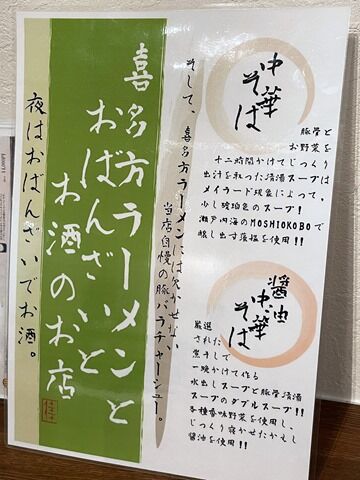 中華そば
豚骨と
お野菜を
十二時間かけてじっくり
出汁を取った清湯スープは
メイラード現象によって、
少し琥珀色のスープ!
瀬戸内海のMOSHIOKOBOで
醤油
中華そば
厳選
された
煮干しで
一晩かけて作る
水出しスープと豚骨清湯
スープのダブルスープ!!
各種香味野菜を使用し、
じっくり寝かせたかえし
醤油を使用!!
そして、喜多方ラーメンには欠かせない
当店自慢の豚バラチャーシュー。
喜多方ラーメンと
おばんざいと
お酒のお店
夜はおばんざいでお酒。